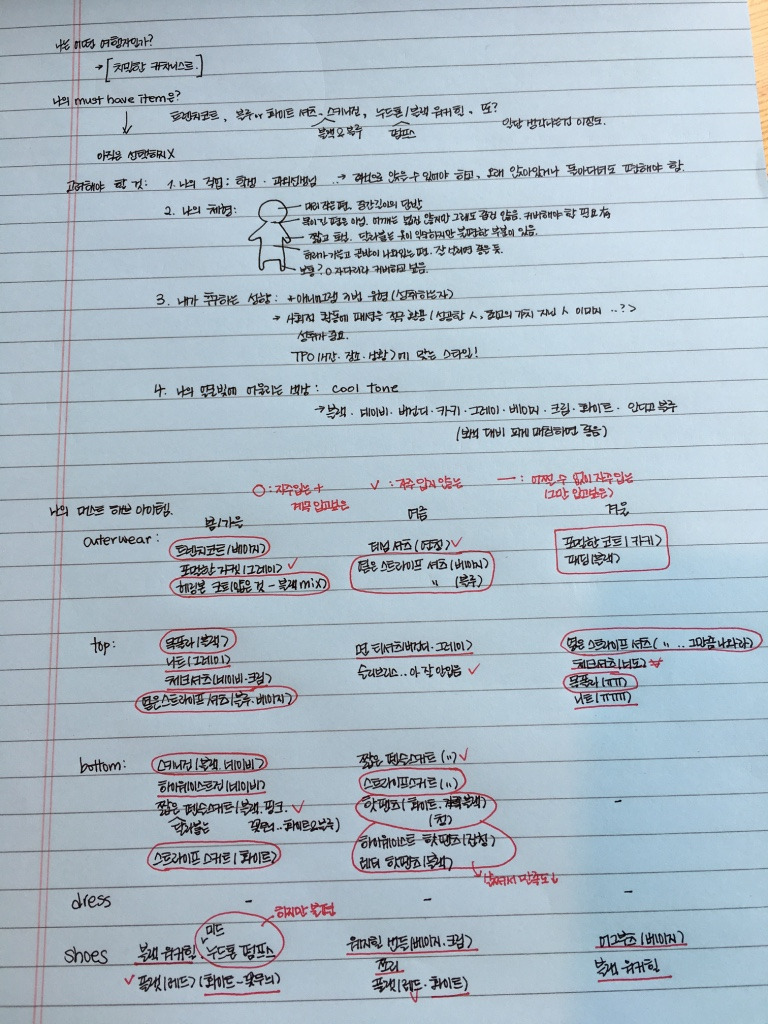 나는 어떤 여행자인가?
→ [치밀한 캐차니스트.]
나의 must have item은?
트렌치코트, 블루 or 화이트 셔츠, 스키니진, 누드톤/블랙 워커힐, 또?
블랙 & 블루 펌프스 일단 생각나는건 이정도.
아직은 선택하지 X
고려해야 할 것: 1. 나의 직업: 학생·과외선생님 → 하면으로 앉을 수 있어야 하고, 오래 앉아있거나 돌아다녀도 편해야 함.
2. 나의 체형:
머리 작은 편, 중간길이의 단발
목이 긴 편은 아님. 어깨는 넓진 않지만 그래도 좁진 않음. 커버해야 할 필요
짧고 통통. 달라붙는 옷이 익숙하지만 불편한 부분이 있음.
허리가 가늘고 골반이 나와있는 편. 잘 살리면 좋은 듯.
보통? O자다리라 커버하고 싶음.
3. 내가 추구하는 성향: + 애니어그램 3번 유형 (성취하는자)
→ 사회적 활동에 패션을 적극 활용 (성공한 人, 최고의 가치 지닌 人 이미지 ..?)
성취가 중요.
TPO(시간·장소·상황)에 맞는 스타일!
4. 나의 얼굴빛에 어울리는 색상: cool tone
→ 블랙·네이비·버건디·카키·그레이·베이지·크림·화이트·인디고블루
(보색 대비 되게 매칭하면 좋음)
○: 자주 입는 + 계속 입고싶은 ✓: 자주 입지 않는 —: 어쩔 수 없이 자주 입는 (그만 입고싶은)
나의 머스트 해브 아이템.
봄/가을 여름 겨울
outerwear: 트렌치코트(베이지) 데님 셔츠(연청) ✓ 포멀한 코트(카키)
포멀한 자켓(그레이) ✓ 얇은 스트라이프 셔츠(베이지) 패딩(블랙)
헤링본 코트(얇은 것 - 블랙 mix) 〃 (블루)
top: 목폴라(블랙) 면 티셔츠(버건디·그레이) 얇은 스트라이프 셔츠(〃 .. 그만좀 나와라)
니트(그레이) 슬리브리스.. 아 잘 안입음 ✓ 체크셔츠(너도) ✓
체크셔츠(네이비·크림) 목폴라(ㅠㅠ)
얇은 스트라이프 셔츠(블루·베이지) 니트(ㅠㅠㅠ)
bottom: 스키니진(블랙·네이비) 짧은 팬슬스커트(〃) ✓
하이웨이스트진(네이비) 스트라이프스커트(〃)
짧은 펜슬스커트(블랙·핑크. ✓ 핫팬츠(화이트·블랙) -
달라붙는 꽃무늬..화이트&블루) (진)
스트라이프 스커트(화이트) 하이웨이스트 핫팬츠(검청)
레더 핫팬츠(블랙)
→ 만족도↓
dress - - -
하지만 불편
미드
shoes 블랙 워커힐 누드톤 펌프스 웨지힐 샌들(베이지·크림) 어그부츠(베이지)
✓ 플랫(레드) (화이트-꽃무늬) 쪼리 블랙 워커힐
플랫(레드·화이트)